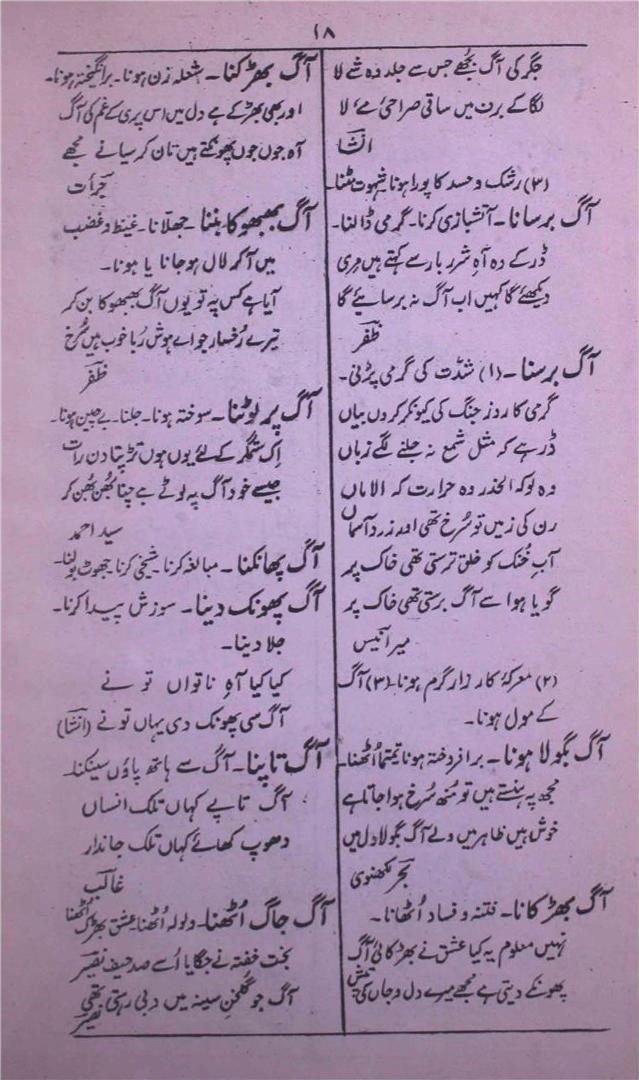 ۱۸
جگر کی آگ بجھے جس سے جلد وہ شے لا
لگا کے برف میں ساقی صراحیٔ مے لا
انشا
(۳) رشک و حسد کا پورا ہونا شہوت مٹنا۔
آگ برسانا۔ آتشبازی کرنا۔ گرمی ڈالنا۔
ڈر کے وہ آہِ شرربار سے کہتے ہیں مری
دیکھئے گا کہیں اب آگ نہ برسایئے گا
ظفر
آگ برسنا۔ (۱) شدّت کی گرمی پڑنی۔
گرمی کا روز جنگ کی کیونکر کروں بیاں
ڈر ہے کہ مثل شمع نہ جلنے لگے زباں
وہ لوکہ الحذر وہ حرارت کہ الاماں
رن کی زمیں تو سُرخ تھی اور زرد آسماں
آبِ خُنک کو خلق ترستی تھی خاک پر
گویا ہوا سے آگ برستی تھی خاک پر
میر انیس
(۲) معرکۂ کارزار گرم ہونا۔ (۳) آگ
کے مول ہونا۔
آگ بگولا ہونا۔ برافروختہ ہونا تیتما اُٹھنا۔
مجھ پہ ہنستے ہیں تو مُنھ سُرخ ہوا جاتا ہے
خوش ہیں ظاہر میں ولے آگ بگولا دل میں
بحر لکھنوی
آگ بھڑکانا۔ فتنہ و فساد اُٹھانا۔
نہیں معلوم یہ کیا عشق نے بھڑکائی آگ
پھونکے دیتی ہے مجھے میرے دل و جاں کی تپش
آگ بھڑکنا۔ شعلہ زن ہونا۔ برانگیختہ ہونا۔
اور بھی بھڑکے ہے دل میں اس پری کے غم کی آگ
آہ جوں جوں پھونکتے ہیں تان کر سیانے مجھے
جرأت
آگ بھبھوکا بننا۔ جھلّانا۔ غیظ و غضب
میں آکر لال ہوجانا یا ہونا۔
آیا ہے کس پہ تو یوں آگ بھبھوکا بن کر
تیرے رُخسار جو اے ہوش رُبا خوب ہیں سُرخ
ظفر
آگ پر لوٹنا۔ سوختہ ہونا۔ جلنا۔ بے چین ہونا۔
اِک ستمگر کے لئے یوں ہوں تڑپتا دن رات
جیسے خود آگ پہ لوٹے ہے چنا بُھن بُھن کر
سید احمد
آگ پھانکنا۔ مبالغہ کرنا۔ شیخی کرنا۔ جھوٹ بولنا۔
آگ پھونک دینا۔ سوزش پیدا کرنا۔
جلا دینا۔
کیا کیا آہِ ناتواں تو نے
آگ سی پھونک دی یہاں تو نے (انشا)
آگ تاپنا۔ آگ سے ہاتھ پاؤں سینکنا۔
آگ تاپے کہاں تلک انساں
دھوپ کھائے کہاں تلک جاندار
غالب
آگ جاگ اُٹھنا۔ ولولہ اُٹھنا عشق بھڑک اُٹھنا
بخت خفتہ نے جگایا اُسے صد حیف نصیر
آگ جو گلخنِ سینہ میں دبی رہتی تھی
نصیر